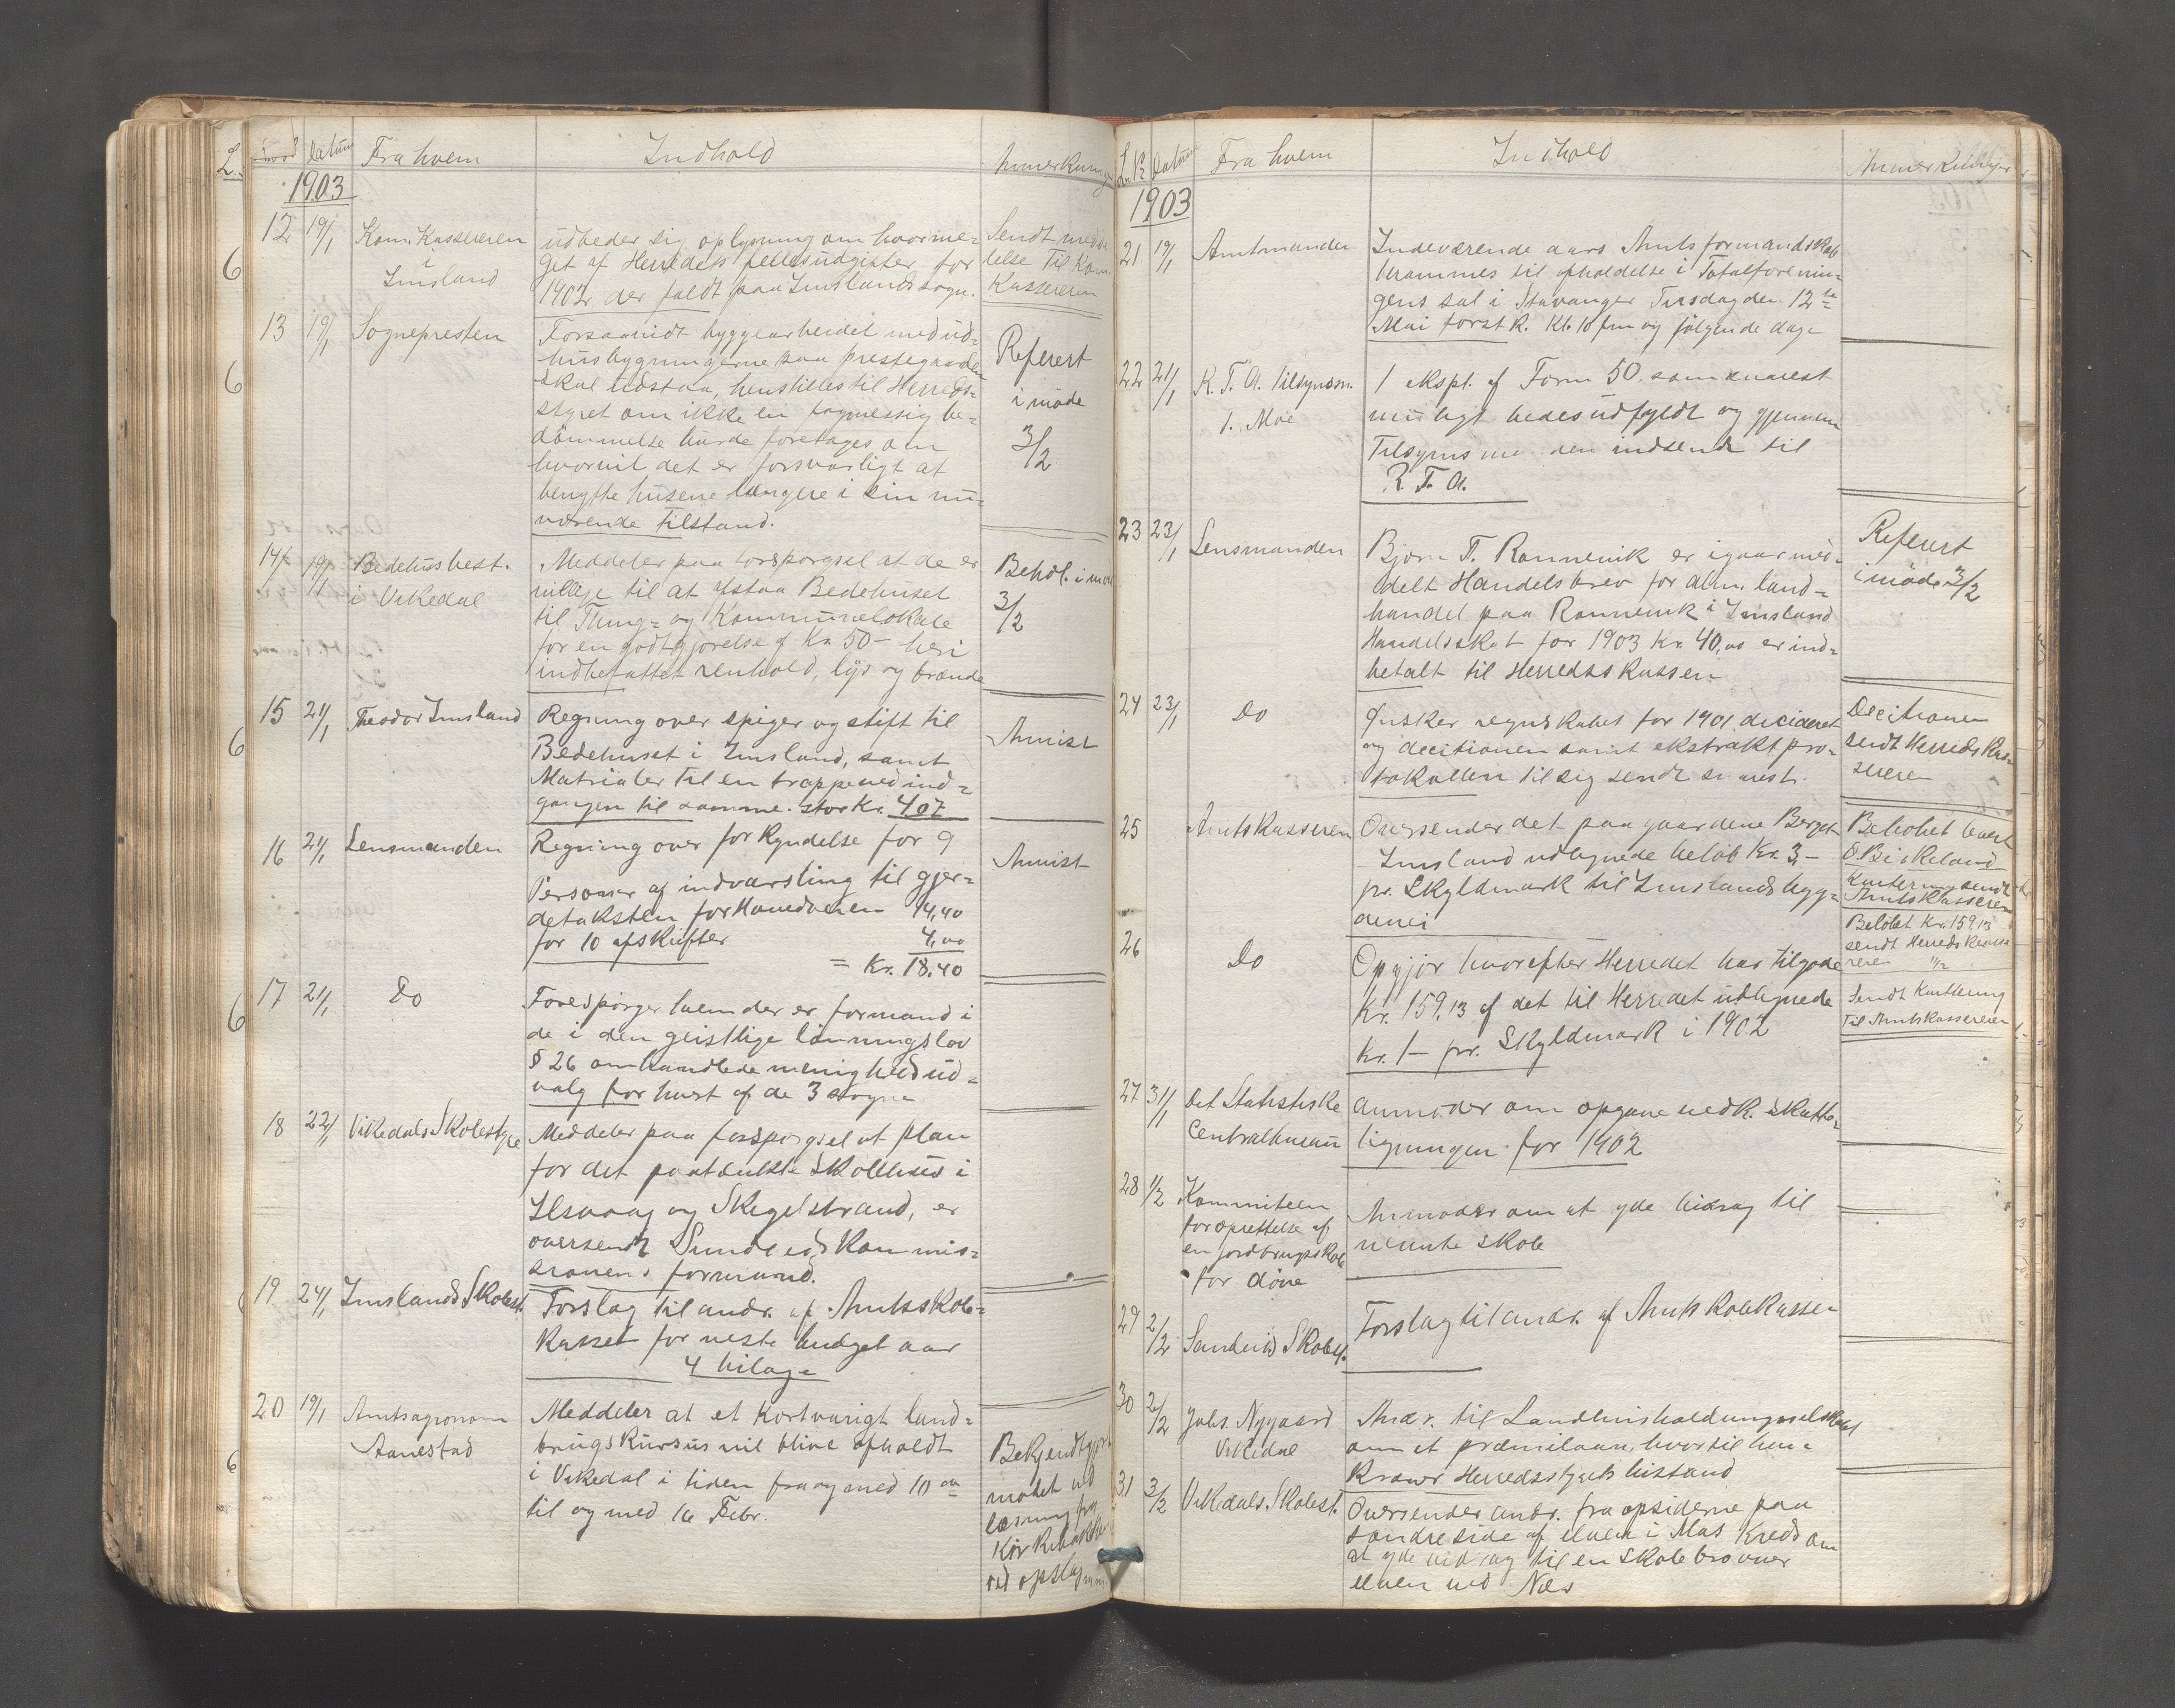 Datum Fra hvem Indhold Anmerkninger
1903
12 19/1 Kom. Kassereren
Imsland
udbeder sig oplysning om hvorme-
get af Herredets fellesudgifter for
1902 der faldt paa Imslands sogn.
Sendt medde
lelse til Kom.
Kassereren
13 19/1 Sognepresten
Forsaavidt byggearbeidet med ud-
husbygningerne paa prestegaarden
skal udstaa, henstilles til Hereds-
styret om ikke en fagmessig be-
dømmelse burde foretages om
hvorvit det er forsvarligt at
benytte husene længere i sin nu-
værende tilstand.
Referert
i møde
3/2
14 19/1 Bedehusbest.
i Vikedal
Meddeler paa forspørgsel at de er
villige til at afstaa Bedehuset
til Thing- og Kommunelokale
for en godtgjørelse af Kr. 50- heri
indbefattet renhold, lys og brænde
Behdl. i mø
3/2
15 21/1 Theodor Imsland
Regning over spiger og stift til
Bedehuset i Imsland, samt
Matrialer til en trappe ved ind-
gangen til samme. stor Kr. 4.07
Anvist
16 21/1 Lensmanden
Regning over forkyndelse for 9
Personer af indvarsling til gjer-
detaksten for Hovedveien 14,40
for 10 afskrifter 4,00
= Kr. 18.40
Anvist
17 21/1 Do
Forespørger hvem der er formand i
de i den geistlige lønningslov
§ 26 omhandlede menighedsud-
valg for hvert af de 3 sogne
18 22/1 Vikedals Skolestyre
Meddeler paa forspørgsel at plan
for det paatænkte Skolehus i
Ilsvaag og Skegelstrand, er
oversendt Sundhedskommis-
sionens formand.
19 24/1 Imslands Skolest.
Forslag til andr. af Amtsskole-
kassen for neste budget aar
4 bilage
20 19/1 Amtsagronom
Aanestad
Meddeler at et kortvarigt land-
brugskursus vil blive afholdt
i Vikedal i tiden fra og med 10de
til og med 16 Febr.
Bekjendtgjort
mødet ved
læsning fra
Kirkebakken
ved opslag
L. № Datum Fra hvem Indhold Anmerkninger
1903
21 19/1 Amtmanden
Indeværende aars Amtsformandskab
berammes til afholdelse i Totalforenin-
gens sal i Stavanger Tirsdag den 12te
Mai førstk. Kl. 10 fm og følgende dage
22 21/1 R. F. A. Tilsynsm.
I. Moe
1 ekspl. af Form 50, som snarest
muligt bedes udfyldt og gjennem
Tilsynsmanden indsendt til
R. F. A.
23 23/1 Lensmanden
Bjørn T. Rønnevik er igaar med-
delt Handelsbrev for alm. land-
handel paa Rønnevik i Imsland
Handelsskat for 1903 Kr. 40,00 er ind-
betalt til Herredskassen.
Referert
i møde 3/2
24 23/1 Do
Ønsker regnskabet for 1901 decideret
og decitionen samt ekstraktpro-
tokollen til sig sendt snarest.
Decitionen
sendt Herredskas-
sereren
25 Amtskasseren
Oversender det paa gaardene Berget
Imsland udlignede beløb Kr. 3,-
pr. Skyldmark til Imslands byg-
devei
Beløbet levert
O. Birkeland
Kvittering sendt
Amtskasseren
26 Do
Opgjør hvorefter Herredet har tilgode
Kr. 159,13 af det til Herredet udlignede
Kr. 1- pr. Skyldmark i 1902
Beløbet Kr. 159,13
sendt Herredskasse
reren
Sendt Kvittering
til Amtskassereren
27 31/1 Det Statistiske
Centralbureau
Anmoder om opgave vedk. skatte-
ligningen for 1902
28 1/2 Kommiteen
for oprettelse af
en jordbrugsskole
for døve
Anmoder om at yde bidrag til
nevnte skole
29 2/2 Sandeid Skolest.
Forslag til andr. af Amtsskolekassen
30 2/2 Johs. Nygaard
Vikedal
Andr. til Landhusholdningsselskabet
om et præmielaan, hvortil han
kræver Herredsstyrets bistand
31 3/2 Vikedals Skolest.
Oversender andr. fra opsiderne paa
søndre side af elven i Mas Kreds om
at yde bidrag til en skolebro over
elven ved Nær